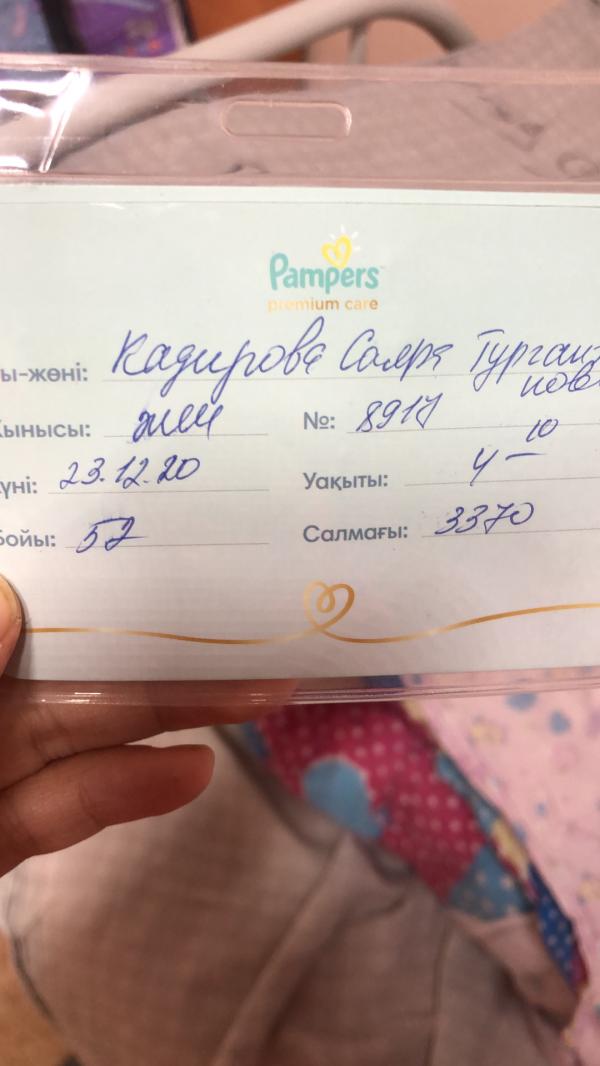 Pampers
premium care
ы-жөні: Кадирова Саяра Турган
нов
ынысы: жен №: 8917
үні: 23.12.20 Уақыты: 4-10
Бойы: 52 Салмағы: 3370